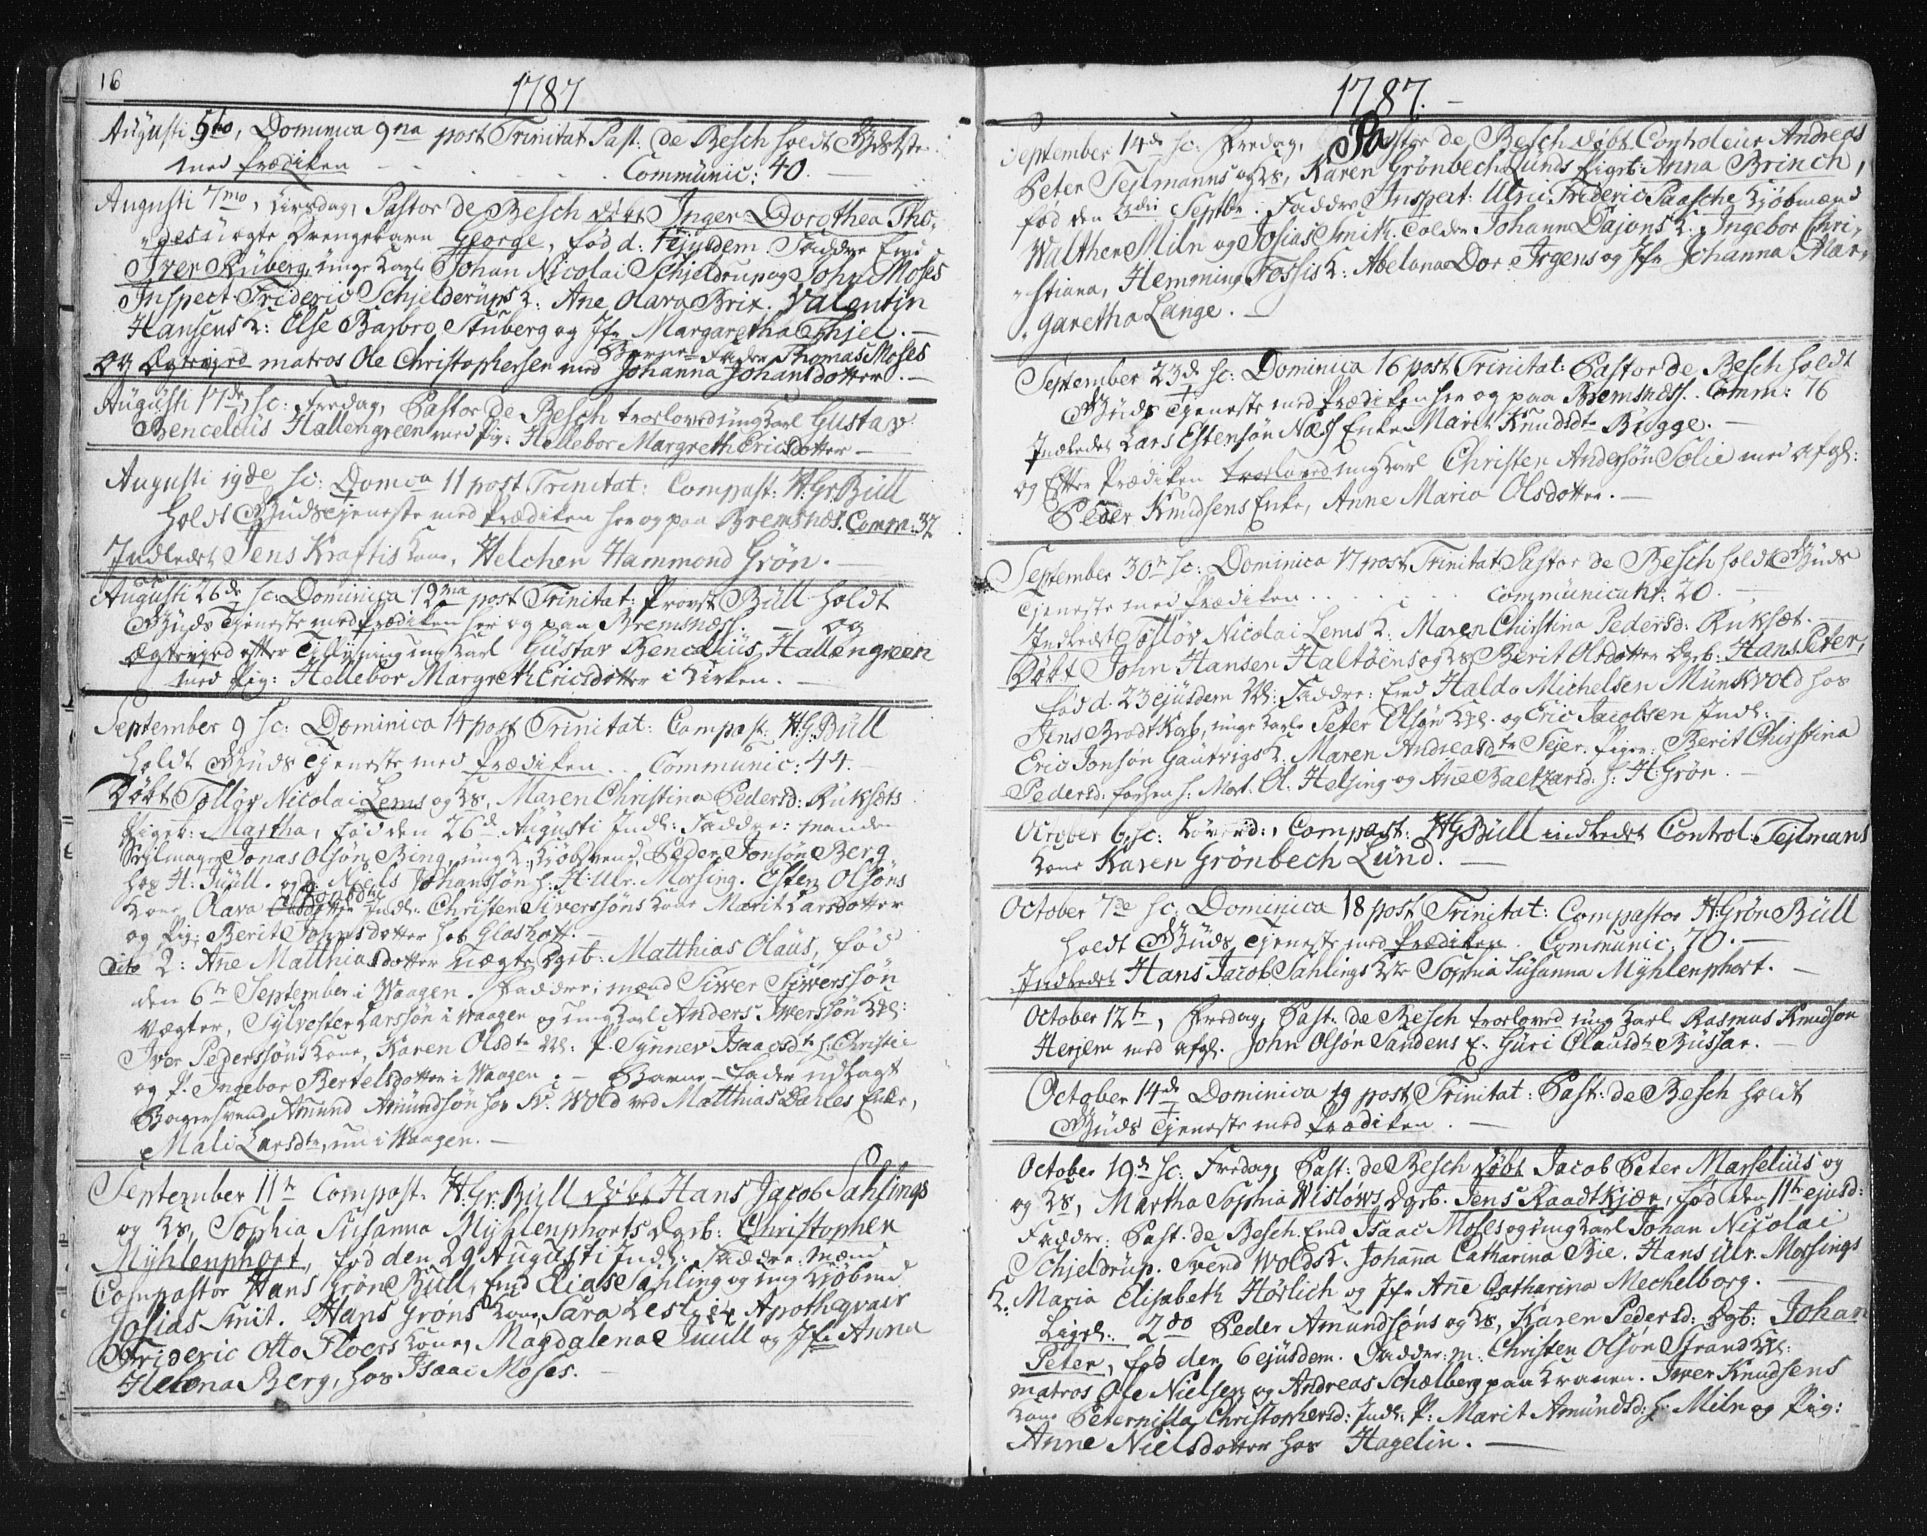 16
1787
Augusti 5to, Dominica 9na post Trinitat Past: de Besch holdt Gudstie
med Prædiken Communic: 40.
Augusti 7mo, Tirsdag, Pastor de Besch døbt Inger Dorothea Tho„
„des uægte Drengebarn George, fød d: 1 ejusdem. Faddre Emd
Iver Ruberg, unge Karle Johan Nicolai Schjeldrup og John Moses
Inspect. Frideric Schjelderups K: Ane Olava Brix. Valentin
Hansens K: Else Barbro Stuberg og Jfr Margaretha Thjel.
Barne-Fader Thomas Moses
og Egtevied matros Ole Christophersen med Johanna Johansdotter.
Augusti 17de, sc: Fredag, Pastor de Besch troloved ungkarl Gustav
Bencelius Hallengreen med Pig: Hellebor Margreth Ericsdotter
Augusti 19de sc: Domca 11 post Trinitat: Compast: H: Gr: Büll
holdt Gudstjeneste med Prædiken her og paa Bremsnæs. Comm: 37
Indledet Jens Krafts kone, Helchen Hammond Grøn.
Augusti 26de sc: Dominica 12ma post Trinitat: Provst Büll holdt
Guds Tjeneste med Prædiken her og paa Bremsnæss. og
Egtevied efter Tillysning ungkarl Gustav Bencelius Hallengreen
med Pig: Hellebor Margreth Ericsdotter i Kirken.
September 9 sc: Dominica 14 post Trinitat: Compast: H: G: Büll
holdt Guds Tjeneste med Prædiken. Communic: 44.
Døbt Tølløv Nicolai Lems og Ks, Maren Christina Pedersd: Ruksets
Pigeb: Martha, fød den 26de Augusti Indl: Faddre: manden
Seylmager Jonas Olsøn Bing, ung K: Peder Jonsøn Berg
hos H: Juüll. og Niels Johanssøn h: H: Ulr. Morsing. Esten Olsøns
Kone Olava Indl: Christen Siverssøns Kone Marit Larsdotter
og Pig: Berit Johnsdotter hos Glashott.
dito 2: Añe Matthiasdotter uægte Dgeb: Matthias Olaus, fød
den 6te September i Vaagen. Faddre: mænd Siver Siverssøn
Vægter, Sylvester Larssøn i Waagen og ungkarl Anders Iverssøn Kbl:
Iver Pederssøns Kone, Karen Olsdtr Kbl: P. Synnev Isaacsdtr h: Christie
og P. Ingebor Bertelsdotter i Waagen. Barne-Fader udlagt
Bagersvend Amund Amundsøn hos Sv. Wold ved Matthias Enke,
Mali Larsdtr, nu i Waagen.
September 11te Compast: H: Gr: Büll døbt Hans Jacob Sahlings
og Ks, Sophia Susanna Myhlenphorts Dgeb: Christopher
Myhlenphort, fød den 29 Augusti Indl: Faddre: Mænd
Compastor Hans Grøn Büll, Emd Elias Sahling og ung Kiøbmd
Josias Smit. Hans Grøns Kone, Sara Leslie Apothequair
Frideric Otto Floers Kone, Magdalena Juüll og Jfr Anna
Helena Berg, hos Isaac Moses.
1787.
September 14de sc: Fredag, Pastor de Besch døbt Controleur Andreas
Peter Tejlmanns og Ks, Karen Grønbech Lunds Pigeb: Anna Brinch,
fød den 3die Septbr: Faddre Inspect: Ulric Frideric Paasche Kjøbmænd
Walther Miln og Josias Smith. Johann Dajons K: Ingebor Chri„
„stiana, Hemming Fossis K: Abelona Dor: Irgens og Jfr Johanna Mar„
„garetha Lange.
September 23de sc: Dominica 16 post Trinitat: Pastor de Besch holdt
Guds Tjeneste med Prædiken her og paa Bremsnæss. Comm: 76
Indledet Lars Estensøn Næss Enke Marit Knudsdtr Bugge.
og Efter Prædiken troloved ungkarl Christen Andersøn Solie med afgl:
Peder Knudsens Enke, Anne Maria Olsdotter.
September 30te sc: Dominica 17 post Trinitat Pastor de Besch holdt Guds
Tjeneste med Prædiken communicant: 20.
Indledet Tølløv Nicolai Lems K: Maren Christina Pedersd: Ruksæt.
Døbt John Hansen Haltøens og Ks, Berit Olsdotter Dgeb: Hans Peter,
fød d. 23 ejusdem Faddre: Emd Haldo Michelsen Munkvold hos
Jens Brodtkorb, unge Karle Peter Olsøn Kbl. og Eric Jacobsen Indl:
Eric Jonsøn Gautvigs K: Maren Andreasdtr Fejer. Piger: Berit Christina
Pedersd: h: Mort. Ol. Helsing og Añe Baltzarsd: h: H: Grøn.
October 6. sc: Løverd:, Compast: H G Büll indledet Control: Tejlmans
Kone Karen Grønbech Lund.
October 7de sc: Dominica 18 post Trinitat: Compastor H: Grøn Büll
holdt Guds Tjeneste med Prædiken. Communic: 70.
Indledet Hans Jacob Sahlings Kne Sophia Susanna Myhlenphort.
October 12te, Fredag, Past. de Besch troloved ung Karl Rasmus Knudsøn
Herjem med afgl. John Olsøn Sandens E: Guri Olausdtr Bussar.
October 14de Dominica 19 post Trinitat: Past: de Besch holdt
Guds Tjeneste med Prædiken.
October 19de sc: Fredag, Past: de Besch døbt Jacob Peter Marselius og
og Ks, Martha Sophia Wisløws Dgeb. Jens Raadtkjær, fød den 11te ejusd:
Faddre: Past. de Besch. Emd Isaac Moses og ungkarl Johan Nicolai
Schjeldrup. Svend Wolds K: Johanna Catharina Bie. Hans Ulr. Morsings
K: Maria Elisabeth Hørlich og Jfr Añe Catharina Mechelborg.
Ligel: 2do Peder Amundsøns og Ks, Karen Pedersd: Dgb: Johan
Peter, fød den 6 ejusdem. Faddre: m: Christen Olsøn Strand Kbl:
matros Ole Nielsen og Andreas Schælberg paa Kranen. Iver Knudsens
Kone Peternilla Christophersd: Indl: P: Marit Amundsd: h: Miln og Pig:
Anne Nielsdotter hos Hagelin.